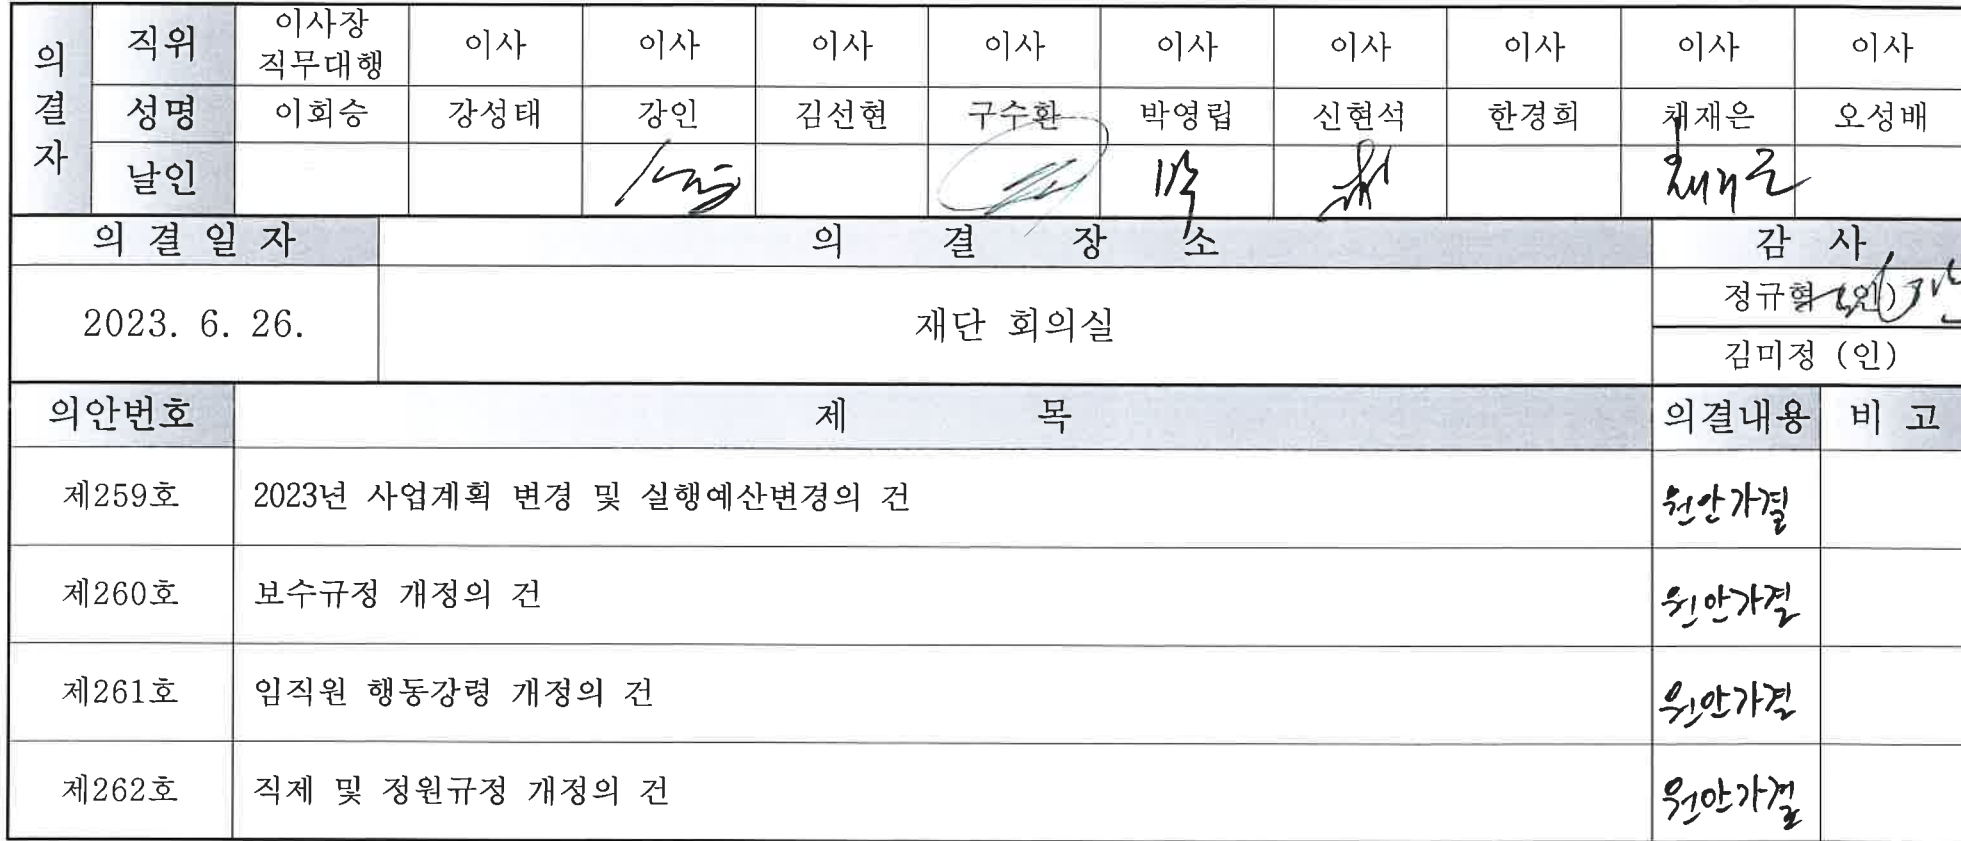 의결자
직위 이사장 직무대행 이사 이사 이사 이사 이사 이사 이사 이사 이사
성명 이회승 강성태 강인 김선현 구수환 박영립 신현석 한경희 채재은 오성배
날인 채재은
의 결 일 자 의 결 장 소 감 사
2023. 6. 26. 재단 회의실 정규혁 (인)
김미정 (인)
의안번호 제 목 의결내용 비 고
제259호 2023년 사업계획 변경 및 실행예산변경의 건 원안가결
제260호 보수규정 개정의 건 원안가결
제261호 임직원 행동강령 개정의 건 원안가결
제262호 직제 및 정원규정 개정의 건 원안가결